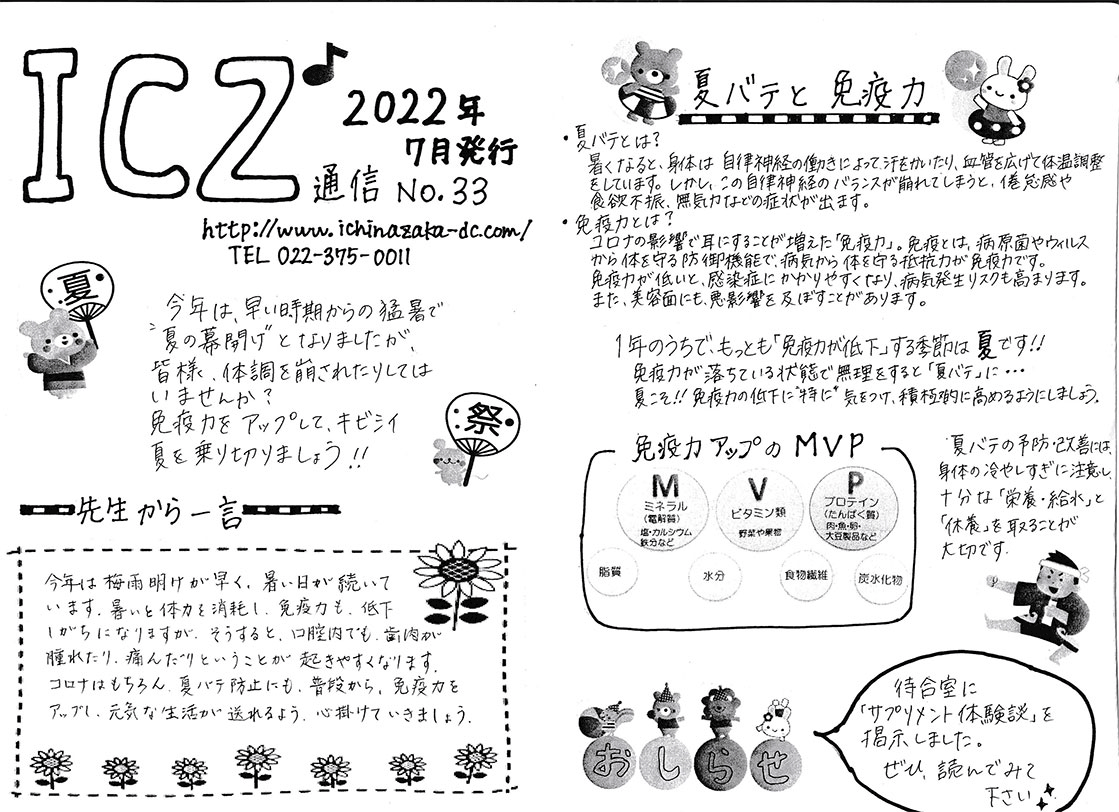 ICZ
2022年
7月発行
通信 No.33
http://www.ichinazaka-dc.com/
TEL 022-375-0011
夏
今年は、早い時期からの猛暑で
"夏の幕開け"となりましたが、
皆様、体調を崩されたりしては
いませんか?
免疫力をアップして、キビシイ
夏を乗り切りましょう!!
祭
先生から一言
今年は梅雨明けが早く、暑い日が続いて
います。暑いと体力を消耗し、免疫力も、低下
しがちになりますが、そうすると、口腔内でも、歯肉が
腫れたり、痛んだりということが起きやすくなります。
コロナはもちろん、夏バテ防止にも、普段から、免疫力を
アップし、元気な生活が送れるよう、心掛けていきましょう。
夏バテと免疫力
・夏バテとは?
暑くなると、身体は自律神経の働きによって汗をかいたり、血管を広げて体温調整
をしています。しかし、この自律神経のバランスが崩れてしまうと、倦怠感や
食欲不振、無気力などの症状が出ます。
・免疫力とは?
コロナの影響で耳にすることが増えた「免疫力」。免疫とは、病原菌やウィルス
から体を守る防御機能で、病気から体を守る抵抗力が免疫力です。
免疫力が低いと、感染症にかかりやすくなり、病気発生リスクも高まります。
また、美容面にも、悪影響を及ぼすことがあります。
1年のうちで、もっとも「免疫力が低下」する季節は夏です!!
免疫力が落ちている状態で無理をすると「夏バテ」に・・・
夏こそ!!免疫力の低下に"特に"気をつけ、積極的に高めるようにしましょう。
免疫力アップのMVP
M
ミネラル
(電解質)
塩・カルシウム
鉄分など
V
ビタミン類
野菜や果物
P
プロテイン
(たんぱく質)
肉・魚・卵・
大豆製品など
脂質
水分
食物繊維
炭水化物
夏バテの予防・改善には、
身体の冷やしすぎに注意し、
十分な「栄養・給水」と
「休養」を取ることが
大切です。
おしらせ
待合室に
「サプリメント体験談」を
掲示しました。
ぜひ、読んでみて
下さい